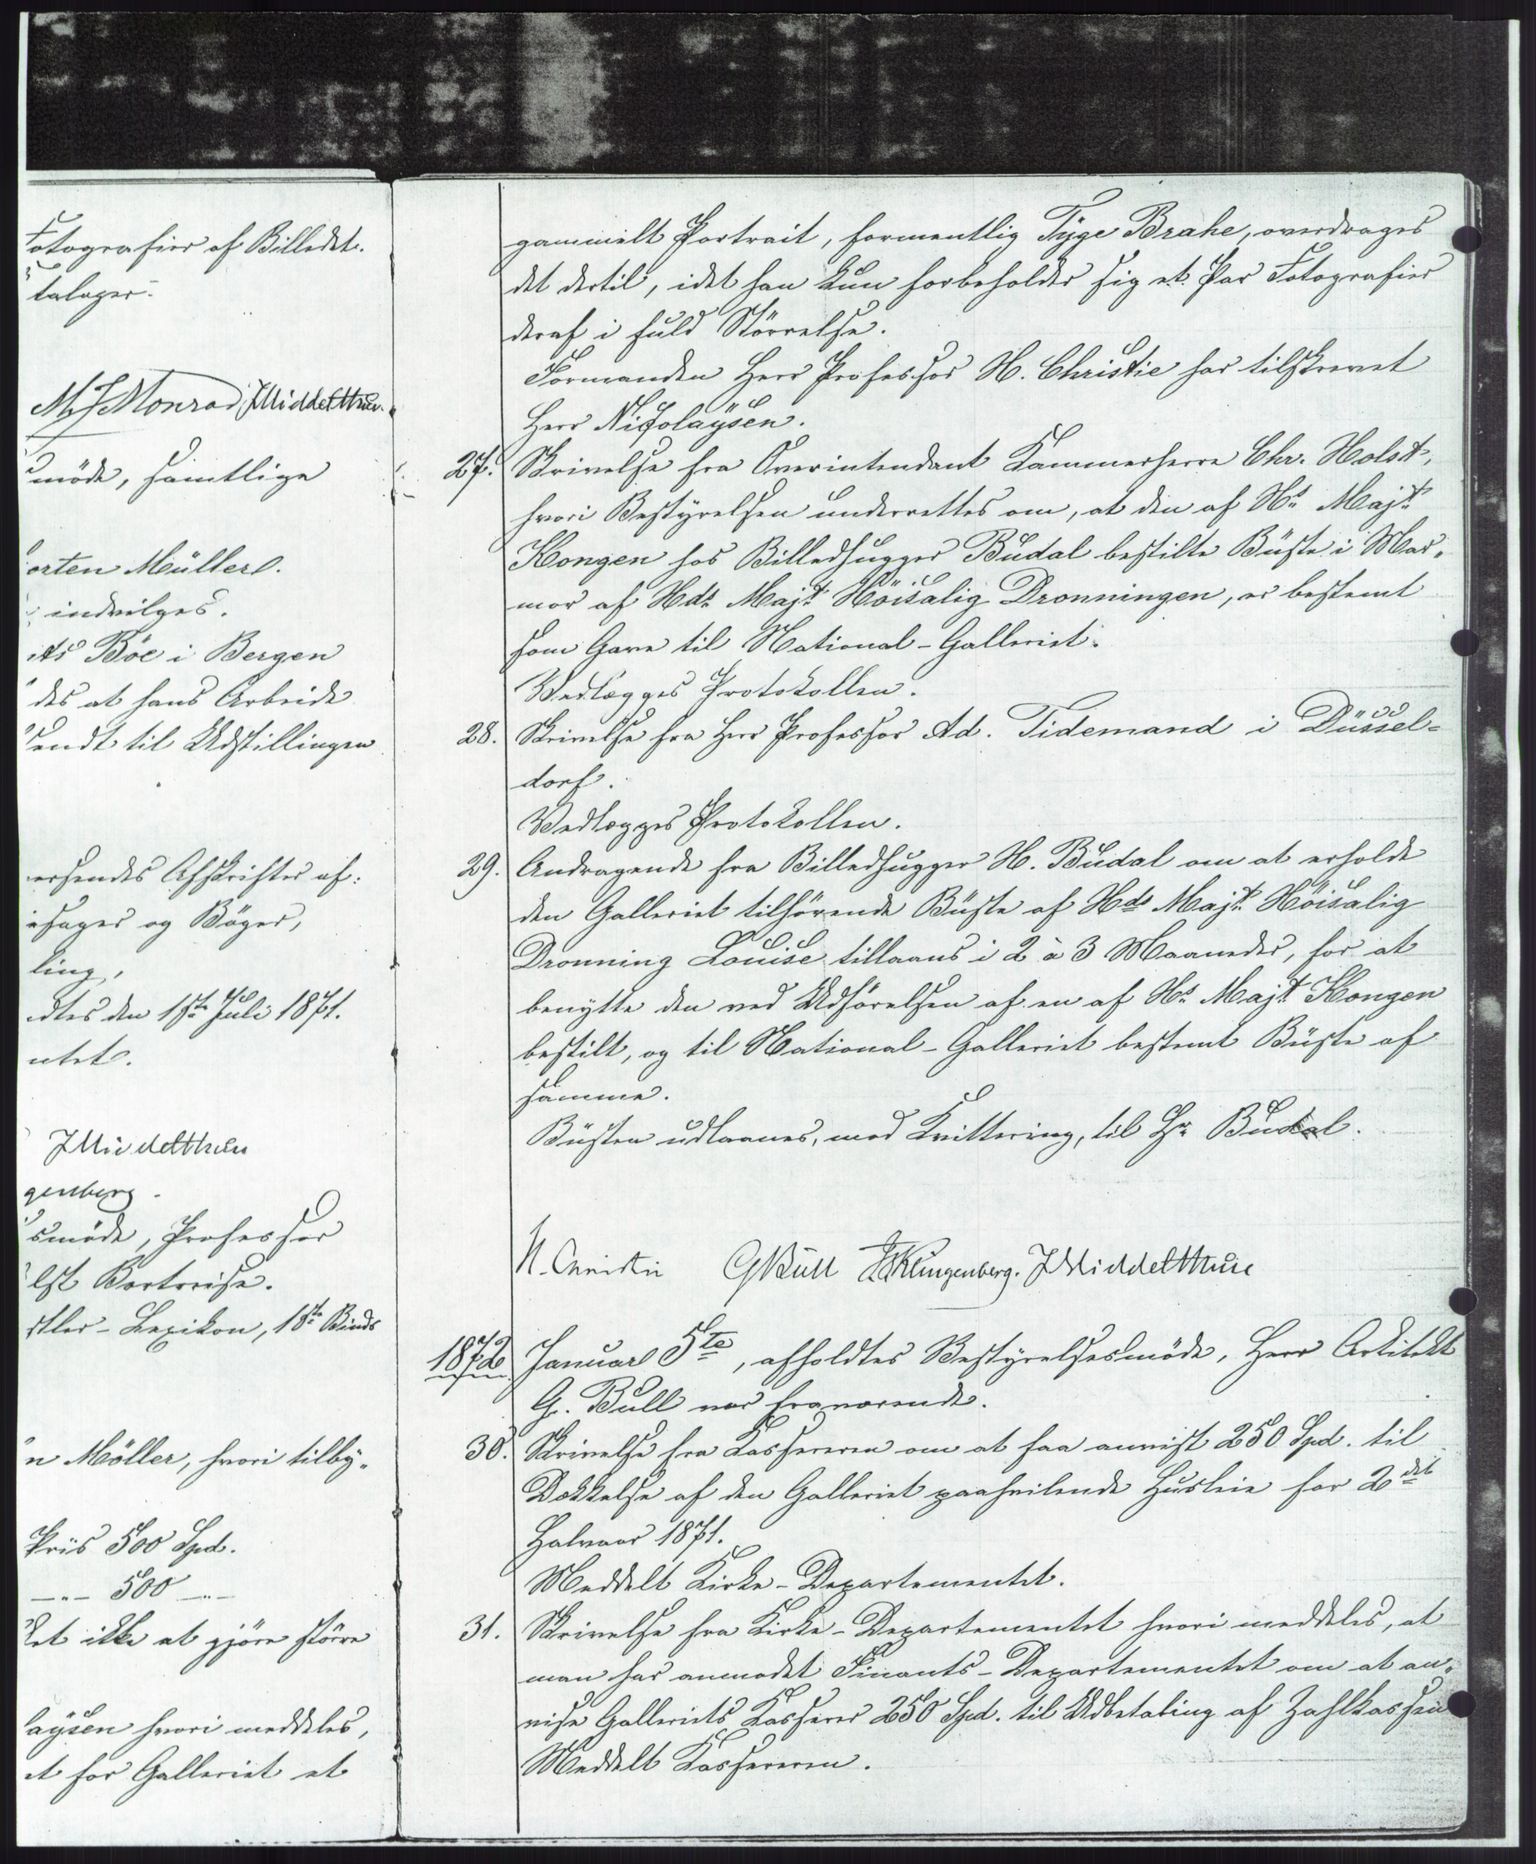 Fotografier af Billedet.
taloger.
M J Monrad JMiddelthun.
møde, samtlige
orten Müller.
indvilges.
ets Böe i Bergen
des at hans Arbeide
sendt til Udstillingen
ersendes Afskrifter af:
esager og Bøger,
ling,
dtes den 1ste Juli 1871.
ntet.
JMiddelthun
genberg.
smøde, Professor
lst Bortreise.
stler-Lexikon, 1ste Binds
n Möller, hvori tilby-
Priis 500 Spd.
—„— 500 —„—
ket ikke at gjøre større
laysen hvori meddeles,
et for Galleriet et
gammelt Portrait, formentlig Tyge Brahe, overdrages
det dertil, idet han kun forbeholder sig et Par Fotografier
deraf i fuld Størrelse.
Formanden Herr Professor H. Christie har tilskrevet
Herr Nicolaysen.
27. Skrivelse fra Overintendant Kammerherre Chr. Holst,
hvori Bestyrelsen underrettes om, at den af Hs Majt
Kongen hos Billedhugger Budal bestilte Büste i Mar-
mor af Hds Majt Höisalig Dronningen, er bestemt
som Gave til National-Galleriet.
Vedlægges Protokollen.
28. Skrivelse fra Herr Professor Ad. Tidemand i Düssel-
dorf.
Vedlægges Protokollen.
29. Andragende fra Billedhugger H. Budal om at erholde
den Galleriet tilhørende Büste af Hds Majt Höisalig
Dronning Louise tillaans i 2 à 3 Maaneder, for at
benytte den ved Udførelsen af en af Hs Majt Kongen
bestilt, og til National-Galleriet bestemt Büste af
samme.
Büsten udlaanes, mod Kvittering, til Hr Budal.
H. Christie GBull Klingenberg. JMiddelthun
1872 Januar 5te, afholdtes Bestyrelsesmøde, Herr Arkitekt
G. Bull var fraværende.
30. Skrivelse fra Kassereren om at faa anvist 250 Spd. til
Dækkelse af den Galleriet paahvilende Husleie for 2det
Halvaar 1871.
Meddelt Kirke-Departementet.
31. Skrivelse fra Kirke-Departementet hvori meddeles, at
man har anmodet Finants-Departementet om at an-
vise Galleriets Kasserer 250 Spd. til Udbetaling af Zahlkassen
Meddelt Kassereren.